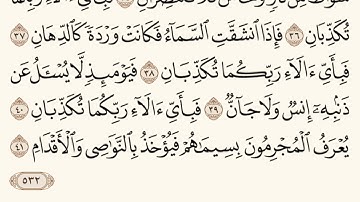 تُكَذِّبَانِ ٣٦ فَإِذَا ٱنشَقَّتِ ٱلسَّمَآءُ فَكَانَتْ وَرْدَةً كَٱلدِّهَانِ ٣٧
فَبِأَيِّ ءَالَآءِ رَبِّكُمَا تُكَذِّبَانِ ٣٨ فَيَوْمَئِذٍ لَّا يُسْـَٔلُ عَن
ذَنۢبِهِۦٓ إِنسٌ وَلَا جَآنٌّ ٣٩ فَبِأَيِّ ءَالَآءِ رَبِّكُمَا تُكَذِّبَانِ ٤٠
يُعْرَفُ ٱلْمُجْرِمُونَ بِسِيمَٰهُمْ فَيُؤْخَذُ بِٱلنَّوَٰصِى وَٱلْأَقْدَامِ ٤١
٥٣٢